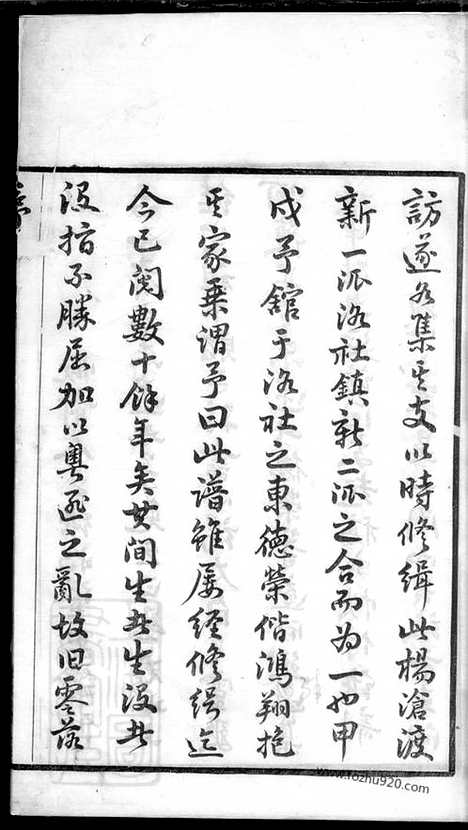 訪遂各集其支以時修緝此楊滄渡
新一派洛社鎮新二派之合而为一也甲
戌予舘于洛社之東德榮偕鴻翔抱
其家乗謂予曰此譜雖屡经修緝迄
今已閲數十餘年矣其間生者生没者
没指不勝屈加以粤逆之亂故旧零落
www.fozhu920.com